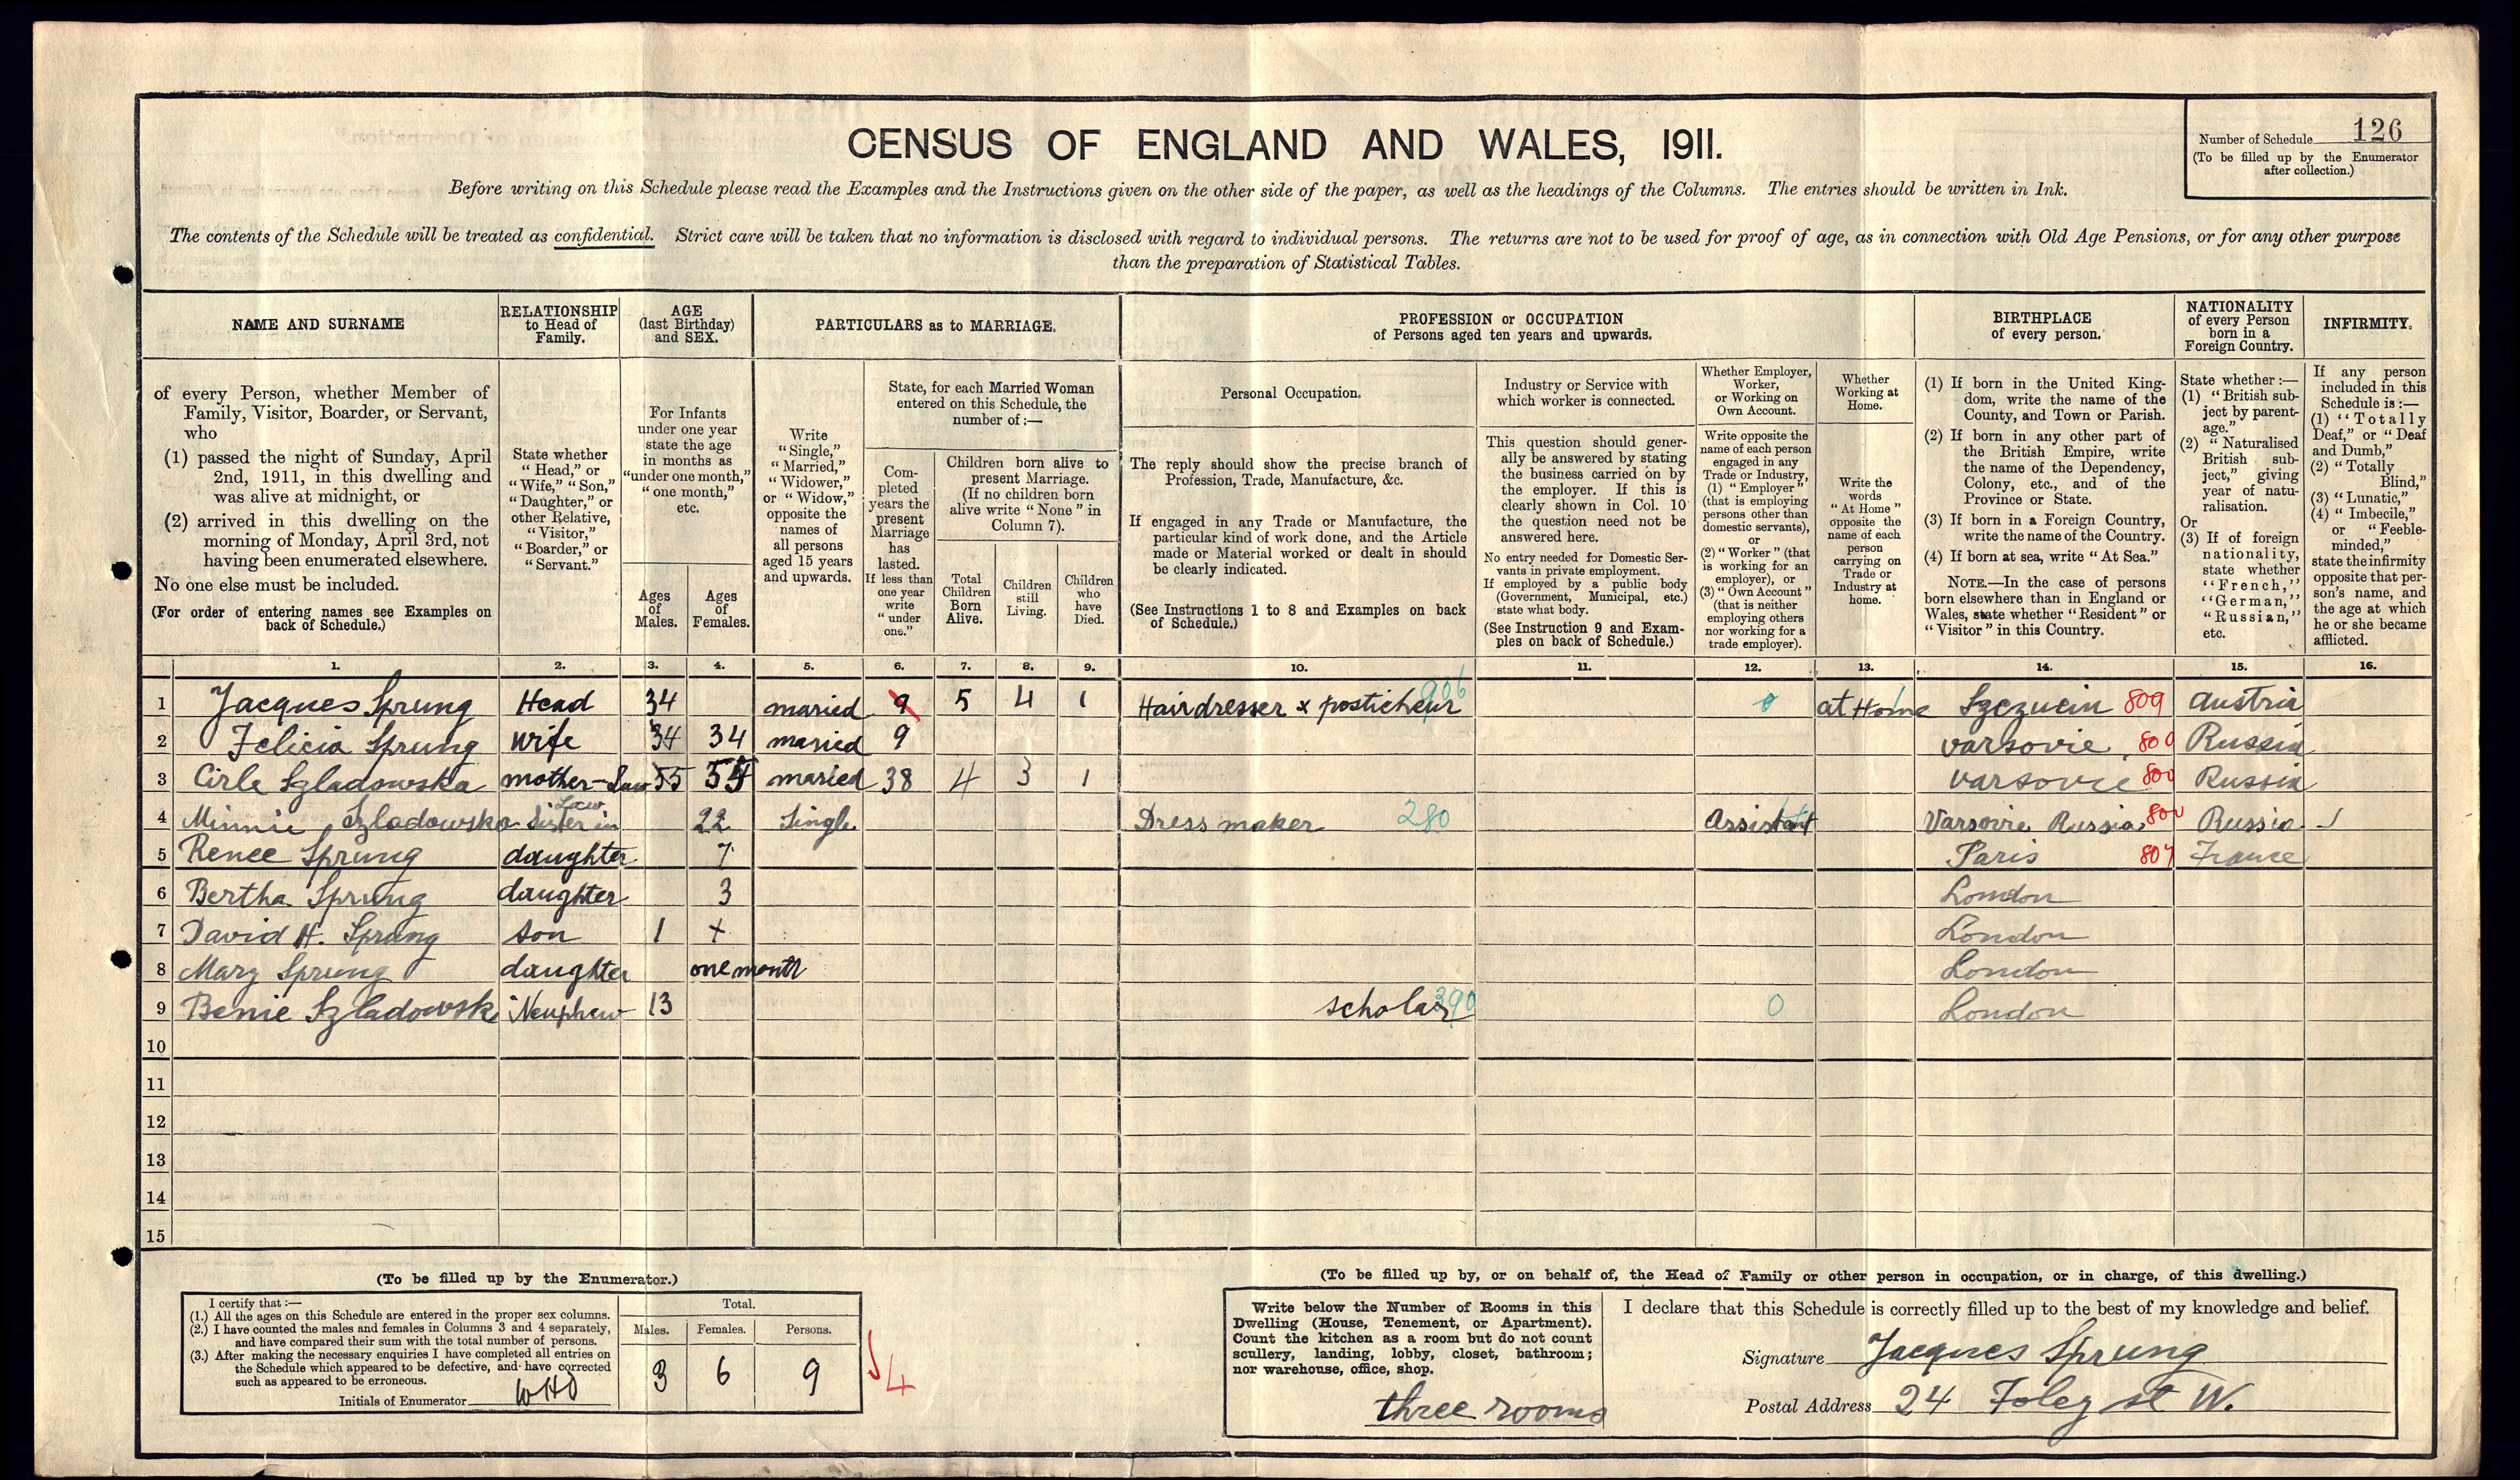 CENSUS OF ENGLAND AND WALES, 1911.
Number of Schedule 126
(To be filled up by the Enumerator
after collection.)
Before writing on this Schedule please read the Examples and the Instructions given on the other side of the paper, as well as the headings of the Columns. The entries should be written in Ink.
The contents of the Schedule will be treated as confidential. Strict care will be taken that no information is disclosed with regard to individual persons. The returns are not to be used for proof of age, as in connection with Old Age Pensions, or for any other purpose
than the preparation of Statistical Tables.
NAME AND SURNAME
of every Person, whether Member of
Family, Visitor, Boarder, or Servant,
who
(1) passed the night of Sunday, April
2nd, 1911, in this dwelling and
was alive at midnight, or
(2) arrived in this dwelling on the
morning of Monday, April 3rd, not
having been enumerated elsewhere.
No one else must be included.
(For order of entering names see Examples on
back of Schedule.)
RELATIONSHIP
to Head of
Family.
State whether
"Head," or
"Wife," "Son,"
"Daughter," or
other Relative,
"Visitor,"
"Boarder," or
"Servant."
AGE
(last Birthday)
and SEX.
For Infants
under one year
state the age
in months as
"under one month,"
"one month,"
etc.
Ages
of
Males.
Ages
of
Females.
PARTICULARS as to MARRIAGE.
Write
"Single,"
"Married,"
"Widower,"
or "Widow,"
opposite the
names of
all persons
aged 15 years
and upwards.
State, for each Married Woman
entered on this Schedule, the
number of :—
Com-
pleted
years the
present
Marriage
has
lasted.
If less than
one year
write
"under
one."
Children born alive to
present Marriage.
(If no children born
alive write "None" in
Column 7).
Total
Children
Born
Alive.
Children
still
Living.
Children
who
have
Died.
PROFESSION or OCCUPATION
of Persons aged ten years and upwards.
Personal Occupation.
The reply should show the precise branch of
Profession, Trade, Manufacture, &c.
If engaged in any Trade or Manufacture, the
particular kind of work done, and the Article
made or Material worked or dealt in should
be clearly indicated.
(See Instructions 1 to 8 and Examples on back
of Schedule.)
Industry or Service with
which worker is connected.
This question should gener-
ally be answered by stating
the business carried on by
the employer. If this is
clearly shown in Col. 10
the question need not be
answered here.
No entry needed for Domestic Ser-
vants in private employment.
If employed by a public body
(Government, Municipal, etc.)
state what body.
(See Instruction 9 and Exam-
ples on back of Schedule.)
Whether Employer,
Worker,
or Working on
Own Account.
Write opposite the
name of each person
engaged in any
Trade or Industry,
(1) "Employer"
(that is employing
persons other than
domestic servants),
or
(2) "Worker" (that
is working for an
employer), or
(3) "Own Account"
(that is neither
employing others
nor working for a
trade employer).
Whether
Working at
Home.
Write the
words
"At Home"
opposite the
name of each
person
carrying on
Trade or
Industry at
home.
BIRTHPLACE
of every person.
(1) If born in the United King-
dom, write the name of the
County, and Town or Parish.
(2) If born in any other part of
the British Empire, write
the name of the Dependency,
Colony, etc., and of the
Province or State.
(3) If born in a Foreign Country,
write the name of the Country.
(4) If born at sea, write "At Sea."
NOTE.—In the case of persons
born elsewhere than in England or
Wales, state whether "Resident" or
"Visitor" in this Country.
NATIONALITY
of every Person
born in a
Foreign Country.
State whether :—
(1) "British sub-
ject by parent-
age."
(2) "Naturalised
British sub-
ject," giving
year of natu-
ralisation.
Or
(3) If of foreign
nationality,
state whether
"French,"
"German,"
"Russian,"
etc.
INFIRMITY.
If any person
included in this
Schedule is :—
(1) "Totally
Deaf," or "Deaf
and Dumb,"
(2) "Totally
Blind,"
(3) "Lunatic,"
(4) "Imbecile,"
or "Feeble-
minded,"
state the infirmity
opposite that per-
son's name, and
the age at which
he or she became
afflicted.
1. 2. 3. 4. 5. 6. 7. 8. 9. 10. 11. 12. 13. 14. 15. 16.
1 Jacques Sprung Head 34 maried 9 5 4 1 Hairdresser x posticheur 906 0 at Home Szczucin 809 Austria
2 Felicia Sprung wife 34 34 maried 9 varsovie 800 Russia
3 Cirle Szladowska mother-Law 55 54 maried 38 4 3 1 varsovie 800 Russia
4 Minnie Szladowska Sister in Law 22 Single Dressmaker 280 Assistant Varsovie Russia 800 Russia
5 Renee Sprung daughter 7 Paris 807 France
6 Bertha Sprung daughter 3 London
7 David H. Sprung son 1 + London
8 Mary Sprung daughter one month London
9 Benie Szladowski Neuphew 13 scholar 390 0 London
10
11
12
13
14
15
(To be filled up by the Enumerator.)
I certify that :—
(1.) All the ages on this Schedule are entered in the proper sex columns.
(2.) I have counted the males and females in Columns 3 and 4 separately,
and have compared their sum with the total number of persons.
(3.) After making the necessary enquiries I have completed all entries on
the Schedule which appeared to be defective, and have corrected
such as appeared to be erroneous.
Initials of Enumerator WHO
Total.
Males. Females. Persons.
3 6 9
4
(To be filled up by, or on behalf of, the Head of Family or other person in occupation, or in charge, of this dwelling.)
Write below the Number of Rooms in this
Dwelling (House, Tenement, or Apartment).
Count the kitchen as a room but do not count
scullery, landing, lobby, closet, bathroom;
nor warehouse, office, shop.
three rooms
I declare that this Schedule is correctly filled up to the best of my knowledge and belief.
Signature Jacques Sprung
Postal Address 24 Foley st W.